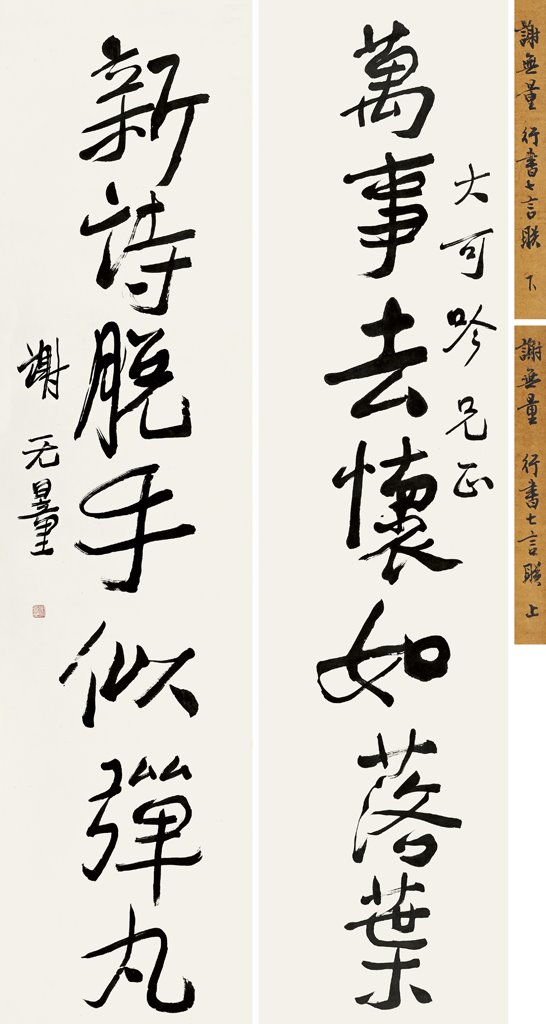 謝無量 行書七言聯 下
謝無量 行書七言聯 上
大可吟兄正
萬事去懷如落葉
新詩脫手似彈丸
謝无量